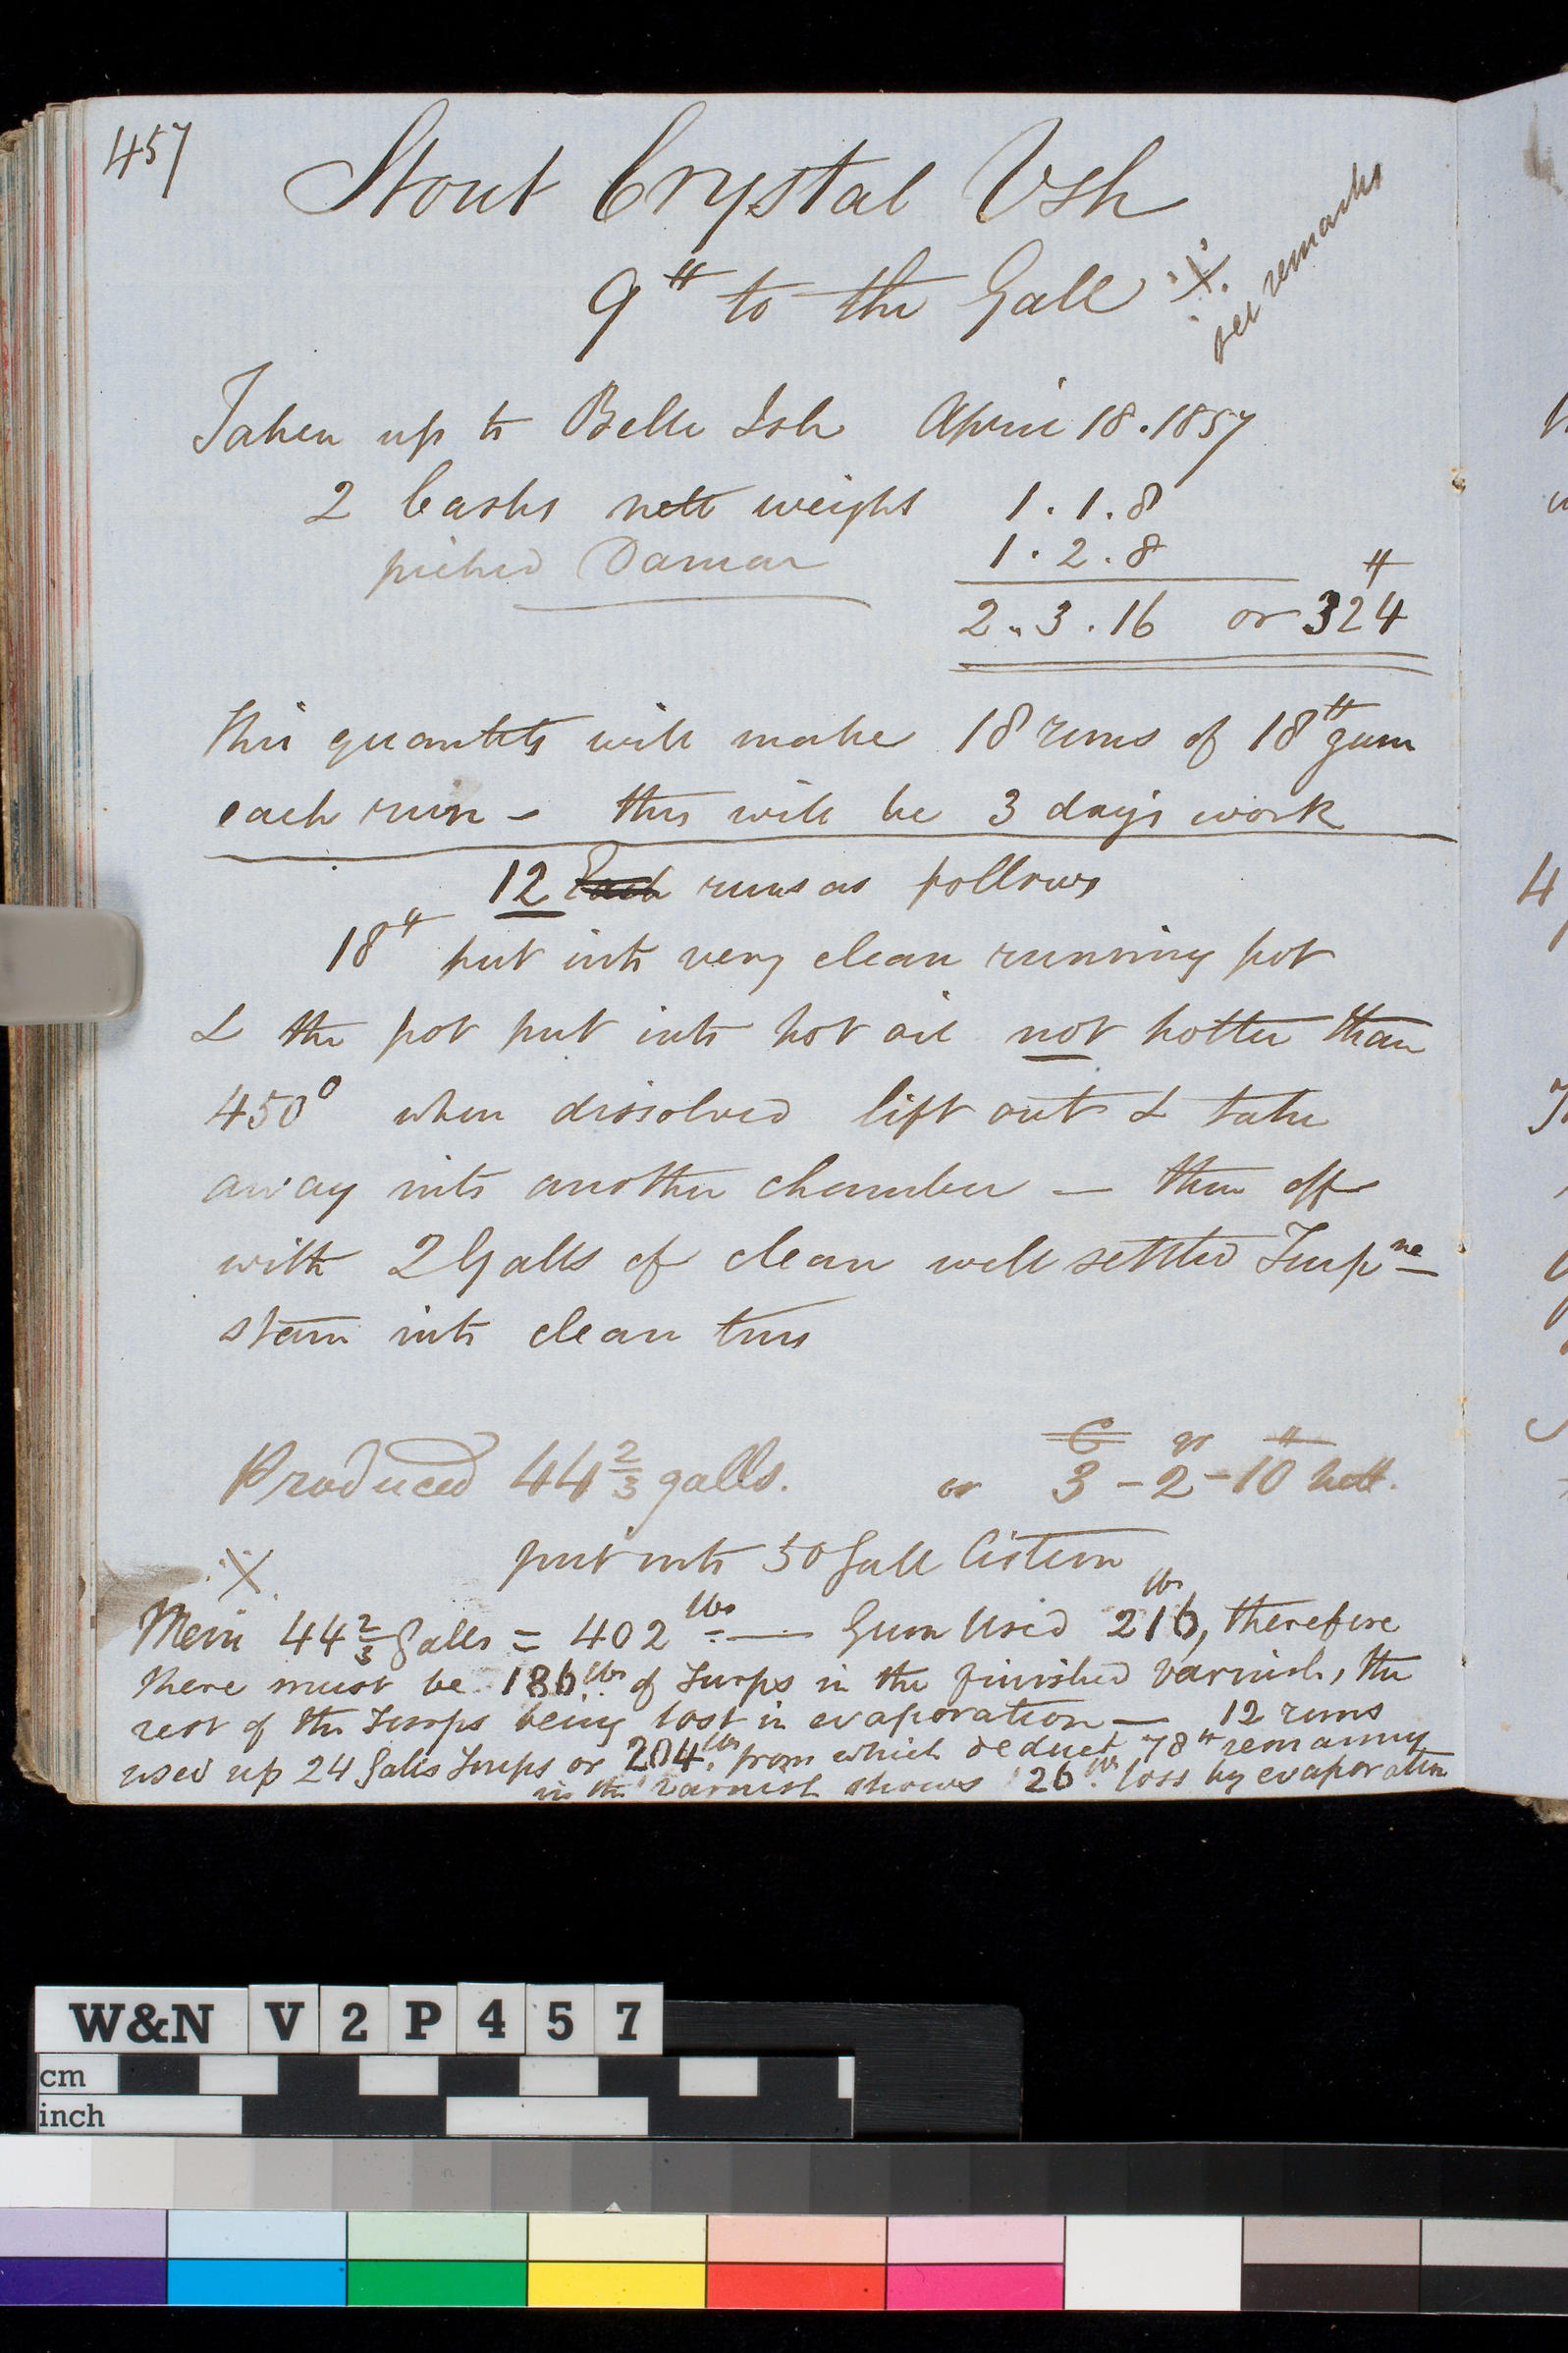 457
Stout Crystal Vsh
9# to the Gall ※
see remarks
Taken up to Belle Isle April 18. 1857
2 Casks nett weight 1 . 1 . 8
picked Damar 1 . 2 . 8
2 . 3 . 16 or 324 #
This quantity will make 18 runs of 18# gum
each run – this will be 3 days work
12 Each runs as follows
18# put into very clean running pot
& the pot put into hot oil not hotter than
450° when dissolved lift out & take
away into another chamber — then off
with 2 Galls of clean well settled Turpne
strain into clean tins
C qr #
Produced 44 2/3 galls. or 3 – 2 – 10 nett.
put into 50 Gall Cistern
※
Mem 44 2/3 Galls = 402 lbs — Gum Used 216 lbs, therefore
there must be 186 lbs of Turps in the finished varnish, the
rest of the Turps being lost in evaporation — 12 runs
used up 24 Galls Turps or 204 lbs from which deduct 78# remaining
in the varnish shows 126 lbs loss by evaporation
W&N V 2 P 4 5 7
cm
inch